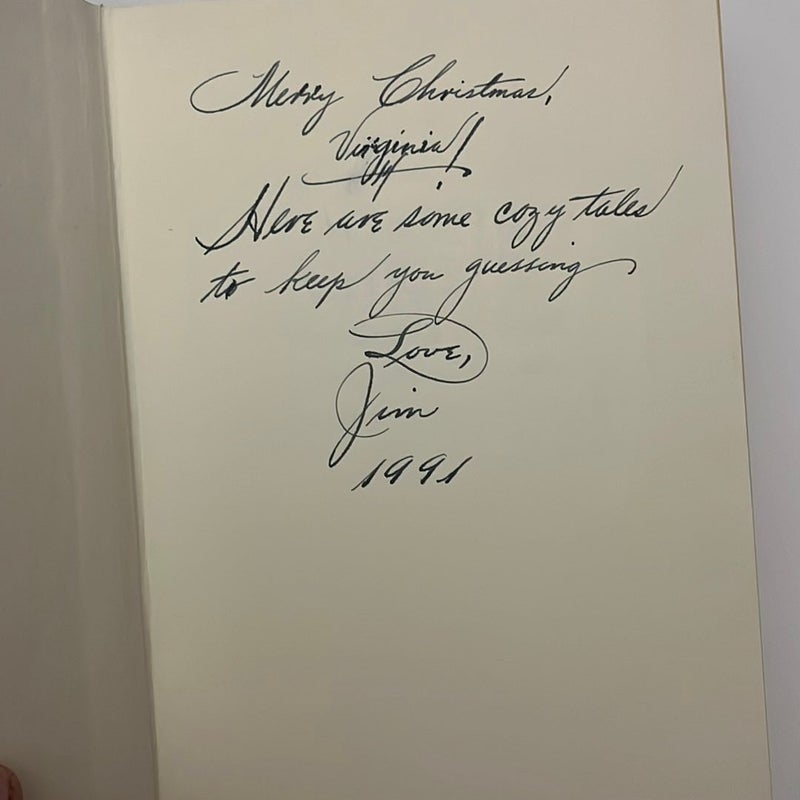 Merry Christmas,
Virginia!
Here are some cozy tales
to keep you guessing
Love,
Jim
1991